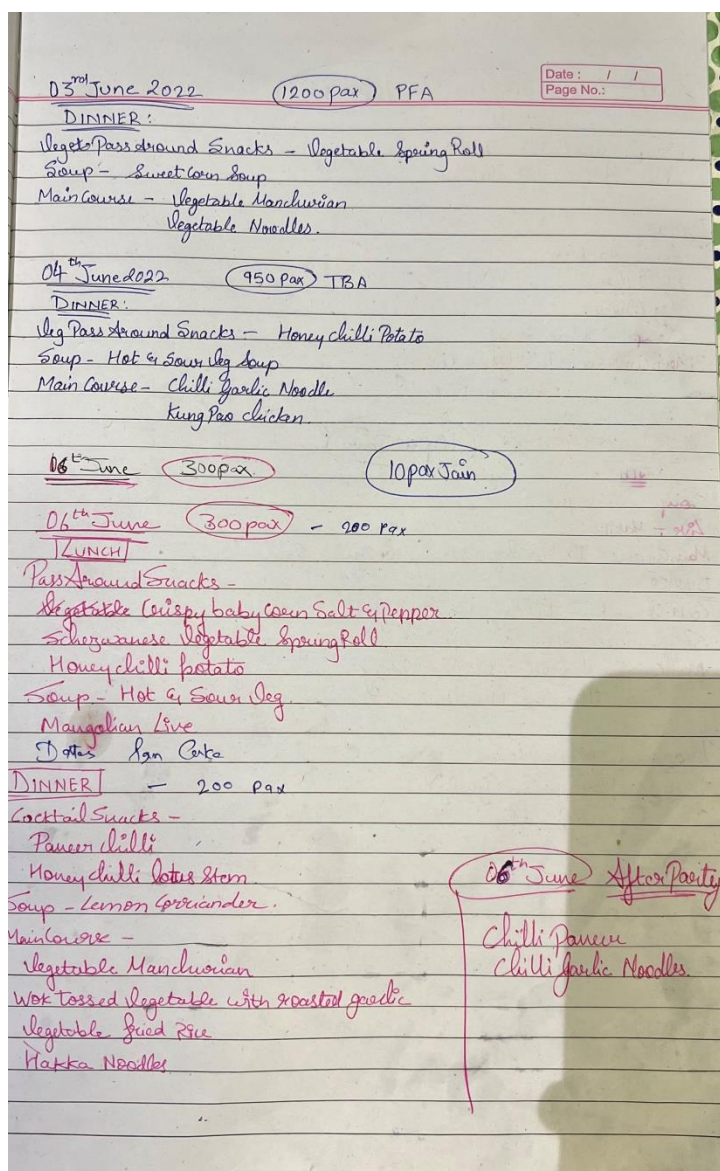 Date : / /
Page No.:
03rd June 2022 1200 pax PFA
DINNER :
Veget Pass Around Snacks - Vegetable Spring Roll
Soup - Sweet Corn Soup
Main Course - Vegetable Manchurian
Vegetable Noodles.
04th June 2022 950 Pax TBA
DINNER :
Veg Pass Around Snacks - Honey chilli Potato
Soup - Hot & Sour Veg Soup
Main Course - Chilli Garlic Noodle
Kung Pao chicken.
06th June 300 pax 10 pax Jain
06th June 300 pax - 200 Pax
LUNCH
Pass Around Snacks -
Vegetable Crispy baby Corn Salt & Pepper
Schezwanese Vegetable Spring Roll
Honey chilli potato
Soup - Hot & Sour Veg
Mangolian Live
Dates
DINNER - 200 Pax
Cocktail Snacks -
Paneer chilli
Honey chilli lotus Stem
Soup - Lemon Corriander.
Main Course -
Vegetable Manchurian
Wok Tossed Vegetable with roasted garlic
Vegetable fried Rice
Hakka Noodles
06th June After Party
Chilli Paneer
Chilli Garlic Noodles.